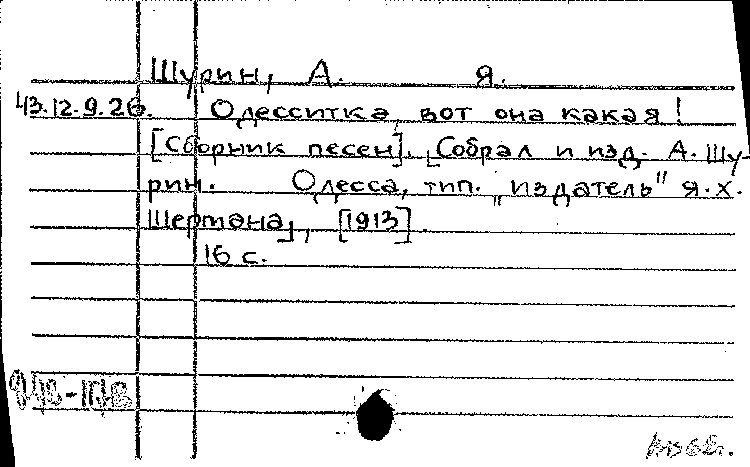 Шурин, А. Я.
43.12.9.26. Одесситка, вот она какая!
[Сборник песен]. [Собрал и изд. А. Шу-
рин. Одесса, тип. „издатель" Я.Х.
Шермана], [1913].
16 с.